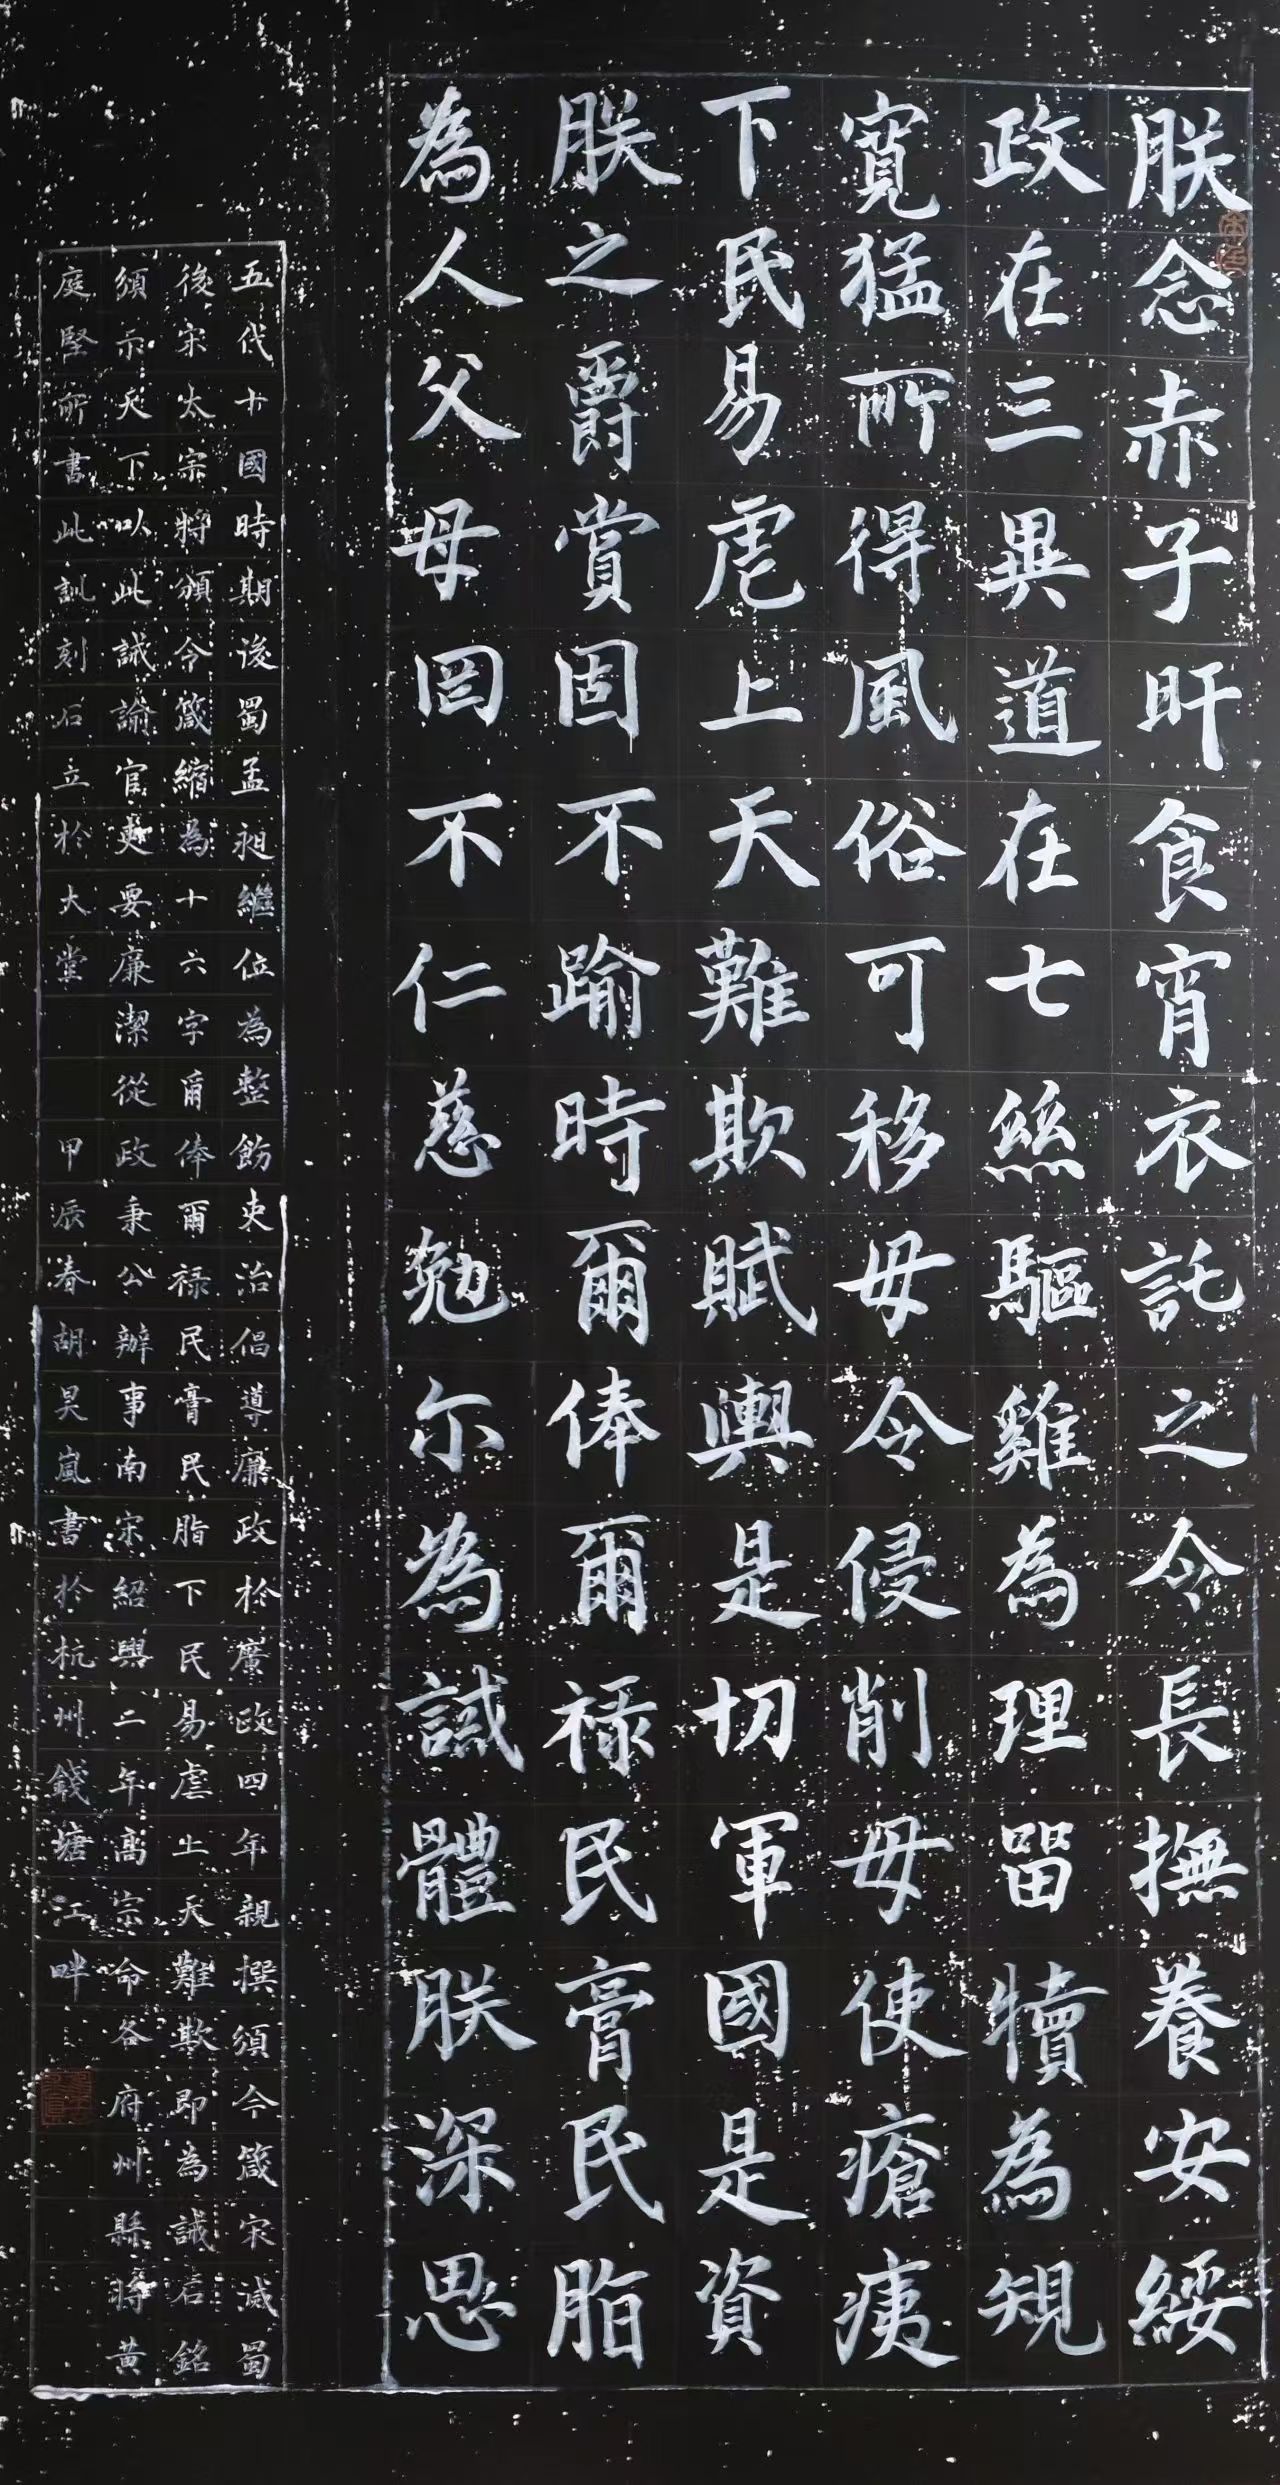 朕念赤子旰食宵衣託之令長撫養安綏
政在三異道在七絲驅雞為理留犢為規
寬猛所得風俗可移毋令侵削毋使瘡痍
下民易虐上天難欺賦輿是切軍國是資
朕之爵賞固不踰時爾俸爾祿民膏民脂
為人父母罔不仁慈勉尔為誡體朕深思
五代十國時期後蜀孟昶繼位為整飭吏治倡導廉政於廣政四年親撰頒令箴宋滅蜀
後宋太宗將頒令箴縮為十六字爾俸爾祿民膏民脂下民易虐上天難欺即為誡石銘
頒示天下以此誡諭官吏要廉潔從政秉公辦事南宋紹興二年高宗命各府州縣將黃
庭堅所書此訓刻石立於大堂 甲辰春胡昊嵐書於杭州錢塘江畔